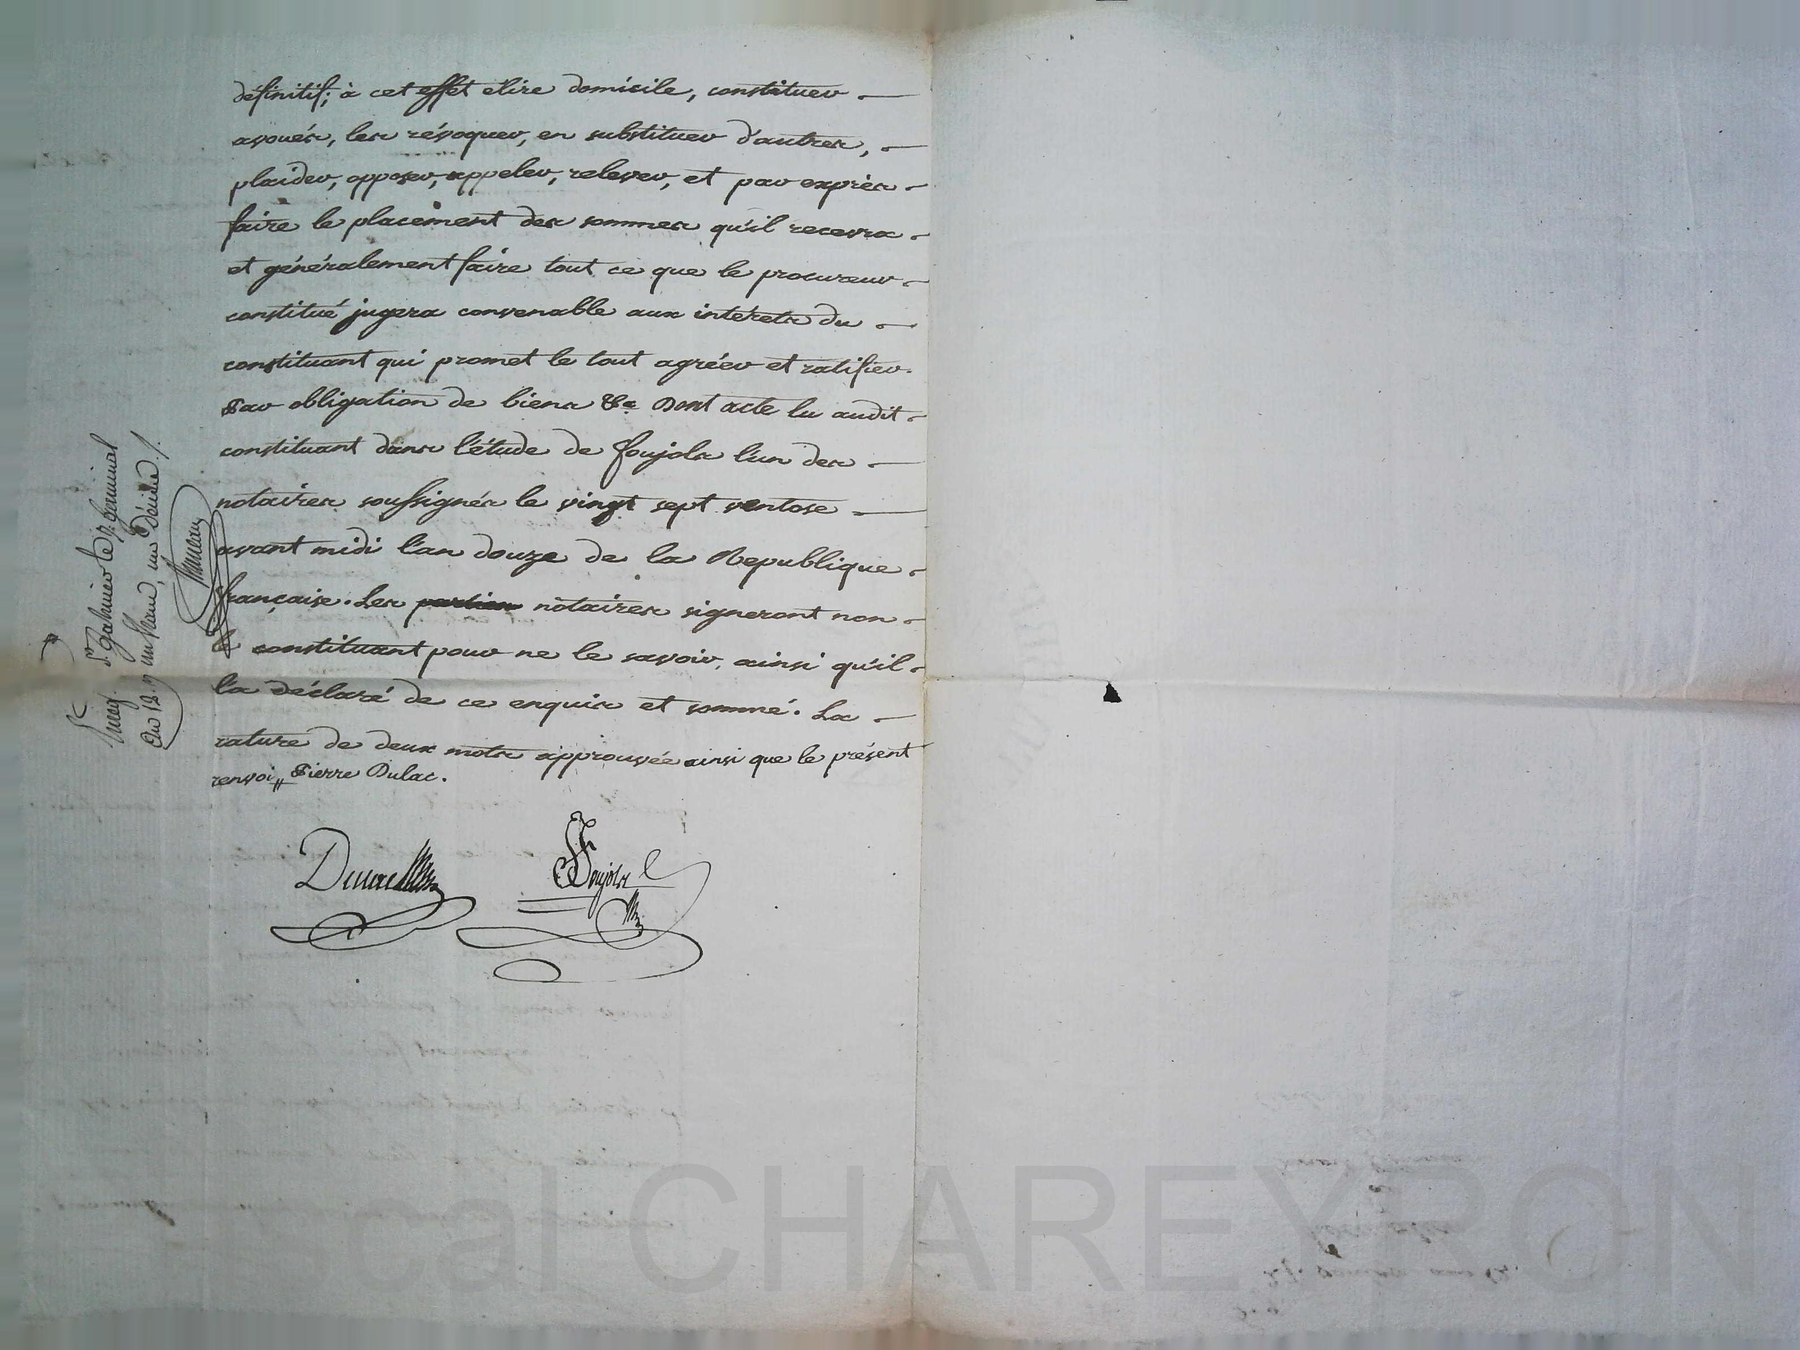 définitif; à cet effet élire domicile, constituer
avoués, les révoquer, en substituer d'autres,
plaider, opposer, appeler, relever, et par exprès
faire le placement des sommes qu'il recevra
et généralement faire tout ce que le procureur
constitué jugera convenable aux intérets du
constituant qui promet le tout agréer et ratifier.
Par obligation de biens &a Dont acte lu audit
constituant dans l'étude de Foujols l'un des
notaires soussignés le vingt sept ventose
avant midi l'an douze de la Republique
française. Les parties notaires signeront non
le constituant pour ne le savoir, ainsi qu'il
l'a déclaré de ce enquis et sommé. La
rature de deux mots approuvée ainsi que le présent
renvoi // Pierre Dulac.
Foujols
Enreg. à St Galmier le 7 germinal
an 12. un franc, un décime
cal CHAREYRON